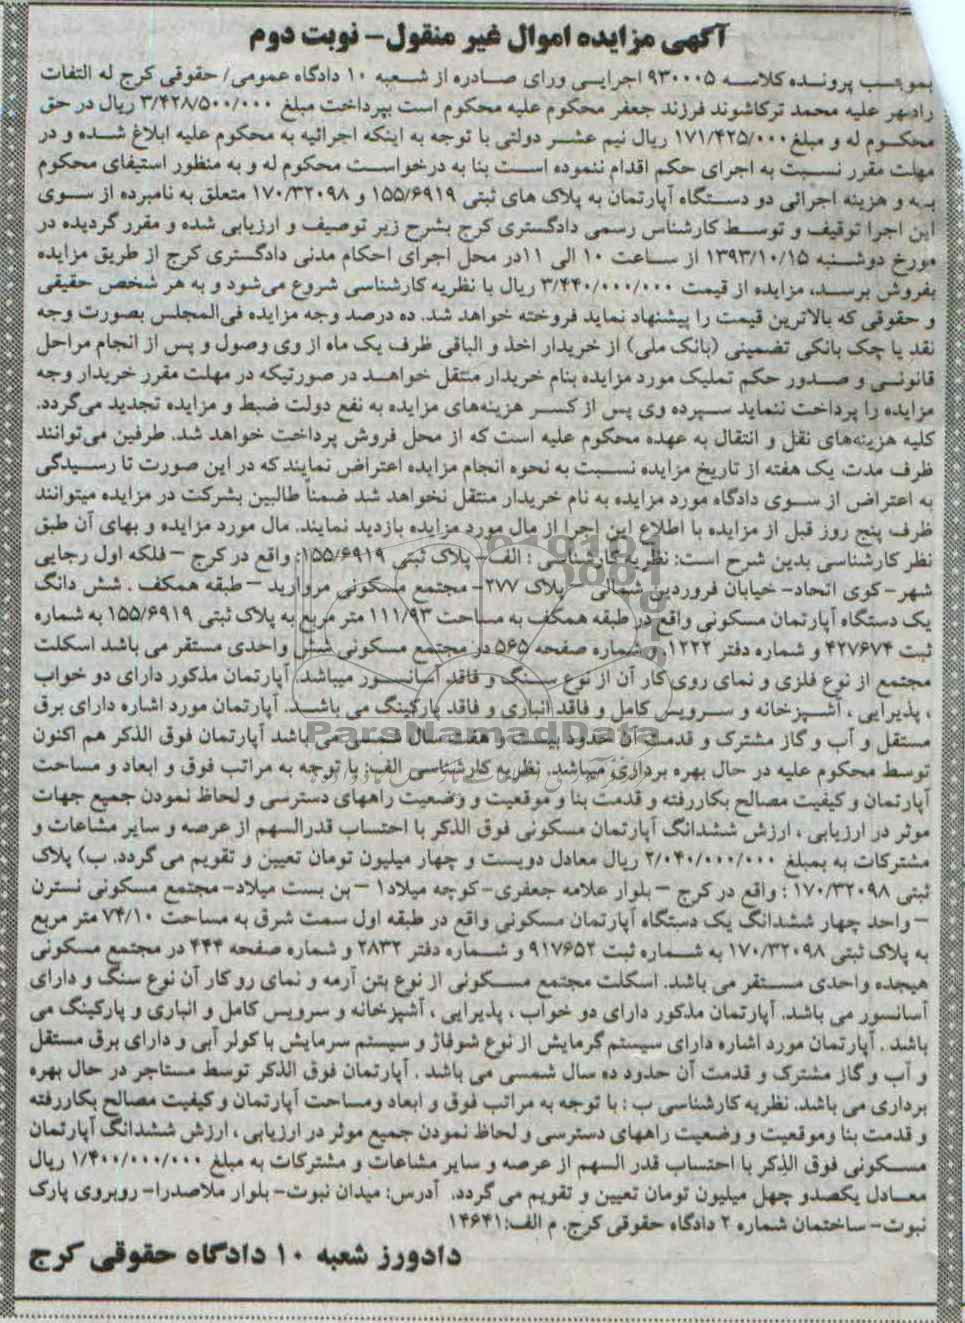 آگهی مزایده اموال غیر منقول- نوبت دوم
بموجب پرونده کلاسه ۹۳۰۰۰۵ اجرایی ورای صادره از شعبه ۱۰ دادگاه عمومی/ حقوقی کرج له التفات
رادمهر علیه محمد ترکاشوند فرزند جعفر محکوم علیه محکوم است بپرداخت مبلغ ۳/۴۲۸/۵۰۰/۰۰۰ ریال در حق
محکوم له و مبلغ ۱۷۱/۴۲۵/۰۰۰ ریال نیم عشر دولتی با توجه به اینکه اجرائیه به محکوم علیه ابلاغ شده و در
مهلت مقرر نسبت به اجرای حکم اقدام ننموده است بنا به درخواست محکوم له و به منظور استیفای محکوم
به و هزینه اجرائی دو دستگاه آپارتمان به پلاک های ثبتی ۱۵۵/۶۹۱۹ و ۱۷۰/۳۲۰۹۸ متعلق به نامبرده از سوی
این اجرا توقیف و توسط کارشناس رسمی دادگستری کرج بشرح زیر توصیف و ارزیابی شده و مقرر گردیده در
مورخ دوشنبه ۱۳۹۳/۱۰/۱۵ از ساعت ۱۰ الی ۱۱در محل اجرای احکام مدنی دادگستری کرج از طریق مزایده
بفروش برسد، مزایده از قیمت ۳/۴۴۰/۰۰۰/۰۰۰ ریال با نظریه کارشناسی شروع می‌شود و به هر شخص حقیقی
و حقوقی که بالاترین قیمت را پیشنهاد نماید فروخته خواهد شد. ده درصد وجه مزایده فی‌المجلس بصورت وجه
نقد یا چک بانکی تضمینی (بانک ملی) از خریدار اخذ و الباقی ظرف یک ماه از وی وصول و پس از انجام مراحل
قانونی و صدور حکم تملیک مورد مزایده بنام خریدار منتقل خواهد در صورتیکه در مهلت مقرر خریدار وجه
مزایده را پرداخت ننماید سپرده وی پس از کسر هزینه‌های مزایده به نفع دولت ضبط و مزایده تجدید می‌گردد.
کلیه هزینه‌های نقل و انتقال به عهده محکوم علیه است که از محل فروش پرداخت خواهد شد. طرفین می‌توانند
ظرف مدت یک هفته از تاریخ مزایده نسبت به نحوه انجام مزایده اعتراض نمایند که در این صورت تا رسیدگی
به اعتراض از سوی دادگاه مورد مزایده به نام خریدار منتقل نخواهد شد ضمناً طالبین بشرکت در مزایده میتوانند
ظرف پنج روز قبل از مزایده با اطلاع این اجرا از مال مورد مزایده بازدید نمایند. مال مورد مزایده و بهای آن طبق
نظر کارشناسی بدین شرح است: نظریه کارشناسی : الف) پلاک ثبتی ۱۵۵/۶۹۱۹: واقع در کرج –فلکه اول رجایی
شهر-کوی اتحاد- خیابان فروردین شمالی – پلاک ۲۷۷- مجتمع مسکونی مروارید – طبقه همکف . شش دانگ
یک دستگاه آپارتمان مسکونی واقع در طبقه همکف به مساحت ۱۱۱/۹۳ متر مربع به پلاک ثبتی ۱۵۵/۶۹۱۹ به شماره
ثبت ۴۲۷۶۷۴ و شماره دفتر ۱۲۲۲ و شماره صفحه ۵۶۵ در مجتمع مسکونی شش واحدی مستقر می باشد اسکلت
مجتمع از نوع فلزی و نمای روی کار آن از نوع سنگ و فاقد آسانسور میباشد. آپارتمان مذکور دارای دو خواب
، پذیرایی ، آشپزخانه و سرویس کامل و فاقد انباری و فاقد پارکینگ می باشد. آپارتمان مورد اشاره دارای برق
مستقل و آب و گاز مشترک و قدمت آن حدود بیست و هفت سال شمسی می باشد آپارتمان فوق الذکر هم اکنون
توسط محکوم علیه در حال بهره برداری میباشد. نظریه کارشناسی الف: با توجه به مراتب فوق و ابعاد و مساحت
آپارتمان و کیفیت مصالح بکاررفته و قدمت بنا و موقعیت و وضعیت راههای دسترسی و لحاظ نمودن جمیع جهات
موثر در ارزیابی ، ارزش ششدانگ آپارتمان مسکونی فوق الذکر با احتساب قدرالسهم از عرصه و سایر مشاعات و
مشترکات به بمبلغ ۲/۰۴۰/۰۰۰/۰۰۰ ریال معادل دویست و چهار میلیون تومان تعیین و تقویم می گردد. ب) پلاک
ثبتی ۱۷۰/۳۲۰۹۸ : واقع در کرج – بلوار علامه جعفری-کوچه میلاد۱ –بن بست میلاد- مجتمع مسکونی نسترن
–واحد چهار ششدانگ یک دستگاه آپارتمان مسکونی واقع در طبقه اول سمت شرق به مساحت ۷۴/۱۰ متر مربع
به پلاک ثبتی ۱۷۰/۳۲۰۹۸ به شماره ثبت ۹۱۷۶۵۲ و شماره دفتر ۲۸۳۲ و شماره صفحه ۴۴۴ در مجتمع مسکونی
هیجده واحدی مستقر می باشد. اسکلت مجتمع مسکونی از نوع بتن آرمه و نمای روکار آن نوع سنگ و دارای
آسانسور می باشد. آپارتمان مذکور دارای دو خواب ، پذیرایی ، آشپزخانه و سرویس کامل و انباری و پارکینگ می
باشد . آپارتمان مورد اشاره دارای سیستم گرمایش از نوع شوفاژ و سیستم سرمایش با کولر آبی و دارای برق مستقل
و آب و گاز مشترک و قدمت آن حدود ده سال شمسی می باشد . آپارتمان فوق الذکر توسط مستاجر در حال بهره
برداری می باشد. نظریه کارشناسی ب : با توجه به مراتب فوق و ابعاد ومساحت آپارتمان و کیفیت مصالح بکاررفته
و قدمت بنا وموقعیت و وضعیت راههای دسترسی و لحاظ نمودن جمیع موثر در ارزیابی ، ارزش ششدانگ آپارتمان
مسکونی فوق الذکر با احتساب قدر السهم از عرصه و سایر مشاعات و مشترکات به مبلغ ۱/۴۰۰/۰۰۰/۰۰۰ ریال
معادل یکصدو چهل میلیون تومان تعیین و تقویم می گردد. آدرس: میدان نبوت- بلوار ملاصدرا- روبروی پارک
نبوت- ساختمان شماره ۲ دادگاه حقوقی کرج. م الف:۱۴۶۴۱
دادورز شعبه ۱۰ دادگاه حقوقی کرج
ParsNamadData